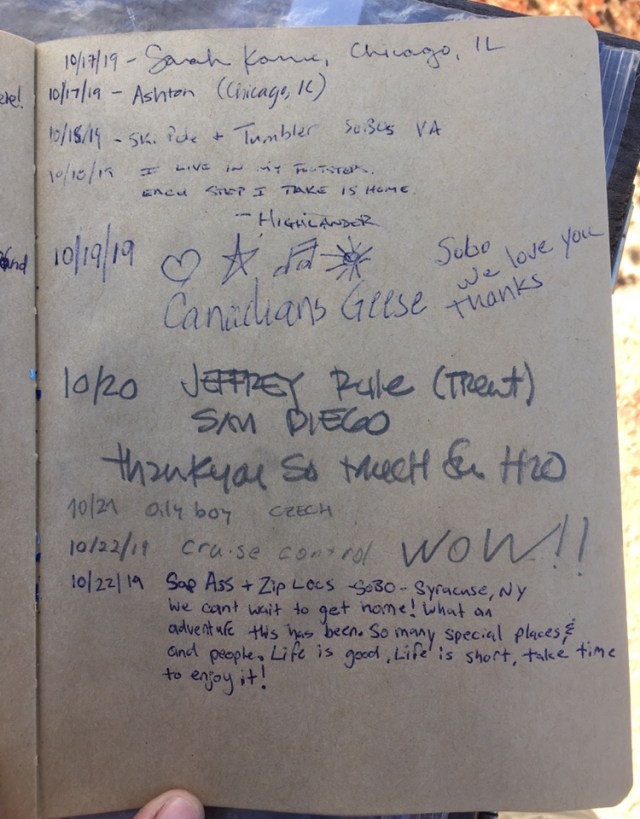 ere!
10/17/19 - Sarah Kane, Chicago, IL
10/17/19 - Ashton (Chicago, IL)
10/18/19 - Ski Pole + Tumbler SoBos VA
10/18/19 I LIVE IN MY FOOTSTEPS.
EACH STEP I TAKE IS HOME.
- HIGHLANDER
ound
10/19/19
Canadians Geese
Sobo
we love you
thanks
10/20 JEFFREY Rule (Trent)
SAN DIEGO
thankyou So MUCH for H2O
10/21 oily boy CZECH
10/22/19 cruise control WOW!!
10/22/19 Sap Ass + Zip Locs - SOBO - Syracuse, NY
We cant wait to get home! What an
adventure this has been. So many special places &
and people. Life is good, Life is short, take time
to enjoy it!